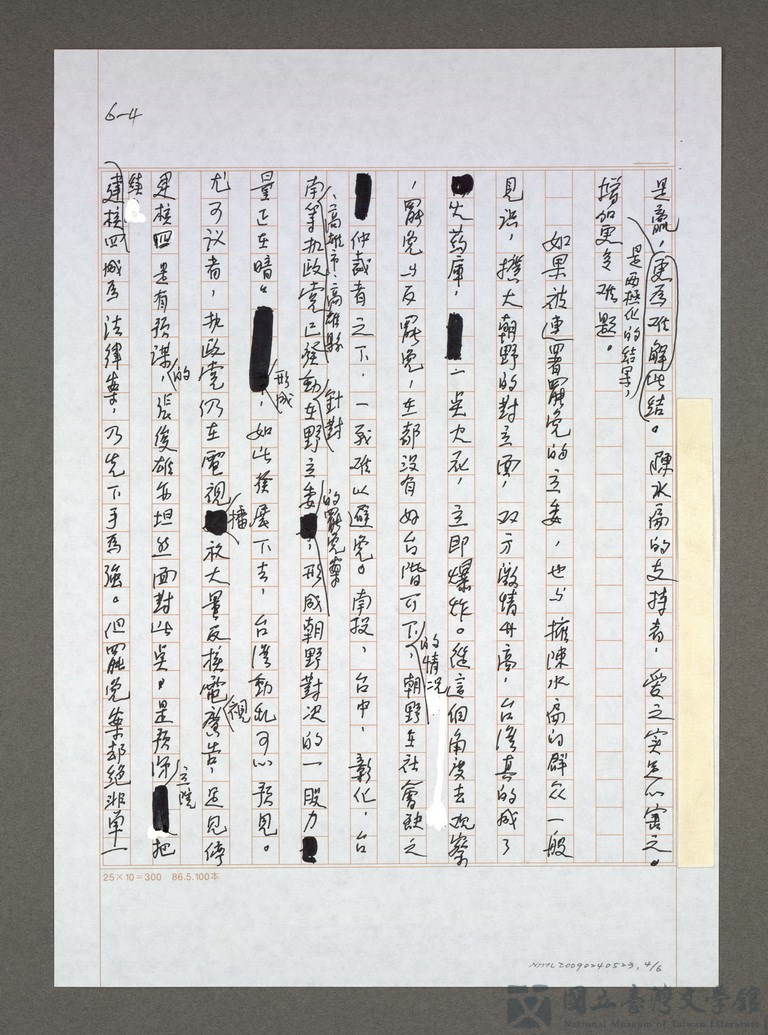 6-4
是贏,更為难解此结。陳水扁的支持者,愛之实足以害之。
是兩極化的结果,
增加更多难题。
如果被連署罷免的立委,也与擁陳水扁的群众一般
見識,擴大朝野的對立面,双方激情升高,台湾真的成了
火药庫,一点火花,立即爆炸。從這個角度去观察
,罷免与反罷免,在都没有好台階可下,朝野在社會缺乏
的情況
仲裁者之下,一战难以避免。南投,台中,彰化,台
南等执政党已發動在野立委,形成朝野對决的一股力
、高雄市、高雄縣
針對
的罷免案
量正在暗。,如此發展下去,台湾動乱可以预見。
形成
尤可议者,执政党仍在電視放大量反核電廣告,足見停
播
視
建核四是有预谋,張俊雄亦坦然面對此点。是预深把
的
立院
續
建核四城為法律案,乃先下手為強。但罷免案却絕非單一
25×10=300 86.5.100本
NMTL20090240523, 4/6
國立臺灣文學館
National Museum of Taiwan Literature